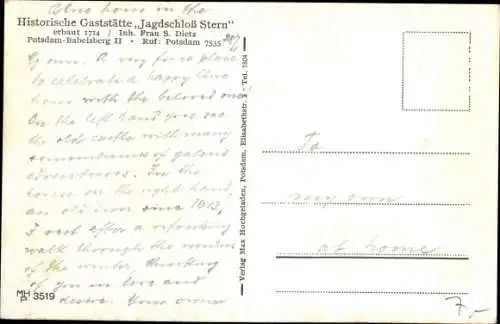 Blue house in the
Historische Gaststätte „Jagdschloß Stern"
erbaut 1714 / Inh. Frau S. Dietz
Potsdam-Babelsberg II - Ruf: Potsdam 7535
My own. A very fine place
to celebrate a happy time
hour with the beloved one!
On the left hand you see
the old castle with many
remembrances of galant
adventures. In the
house on the right hand,
an old inn since 1613,
I rest after a refreshing
walk through the wonders
of the winter, thinking
of you in love and
desire. Your owner
MH 3519
Verlag Max Hochgeladen, Potsdam, Elisabethstr. - Tel. 7804
To
my own
at home
7,-